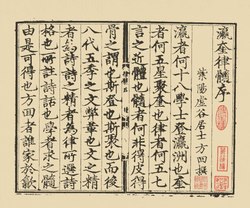 瀛奎律髓序
紫陽虛谷居士方回撰
瀛者何十八學士登瀛洲也奎
者何五星聚奎也律者何五七
言之近體也髓者何非得皮得
骨之謂也斯登也斯聚也而後
八代五季之文弊革也文之精
者為詩詩之精者為律所選詩
格也所註詩話也學者求之髓
由是可得也方回者誰家於歙